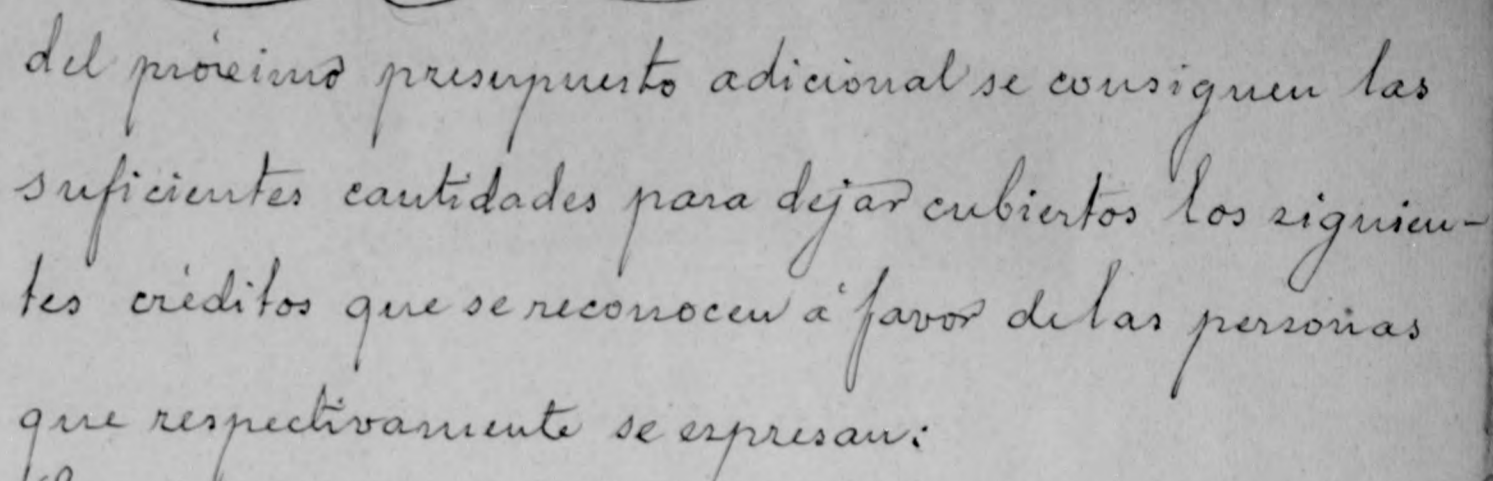 del próximo presupuesto adicional se consignen las
suficientes cantidades para dejar cubiertos los siguien-
tes créditos que se reconocen á favor de las personas
que respectivamente se espresan: